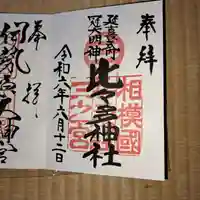 奉拝
相模國
三之宮
比々多神社
令和六年六月十二日
奉拝
伊勢原大神宮